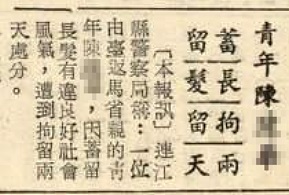 青年陳
蓄留
長髮
拘留
兩天
〔本報訊〕連江
縣警察局稱：一位
由臺返馬省親的靑
年陳，因蓄留
長髮有違良好社會
風氣，遭到拘留兩
天處分。